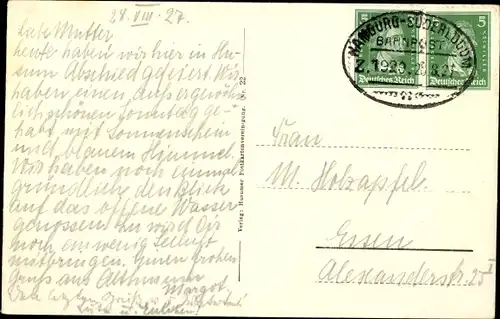 28. VIII. 27.
Liebe Mutter
heute haben wir hier in Hu-
sum Abschied gefeiert. Wir
haben einen außergewöhn-
lich schönen Sonntag ge-
habt mit Sonnenschein
und blauem Himmel.
Wir haben noch einmal
gründlich den Blick
auf das offene Wasser
genossen
noch ein wenig
mitbringen. Einen frohen
Gruß aus Althusum
Margot.
Verlag: Husumer Postkartenvereinigung. Nr. 22
HAMBURG-SÜDERLÜGUM
BAHNPOST
Z.1023 28.8.27
5 5
Deutsches Reich Deutsches Reich
Frau
M. Holzapfel.
Essen
Alexanderstr. 25 I